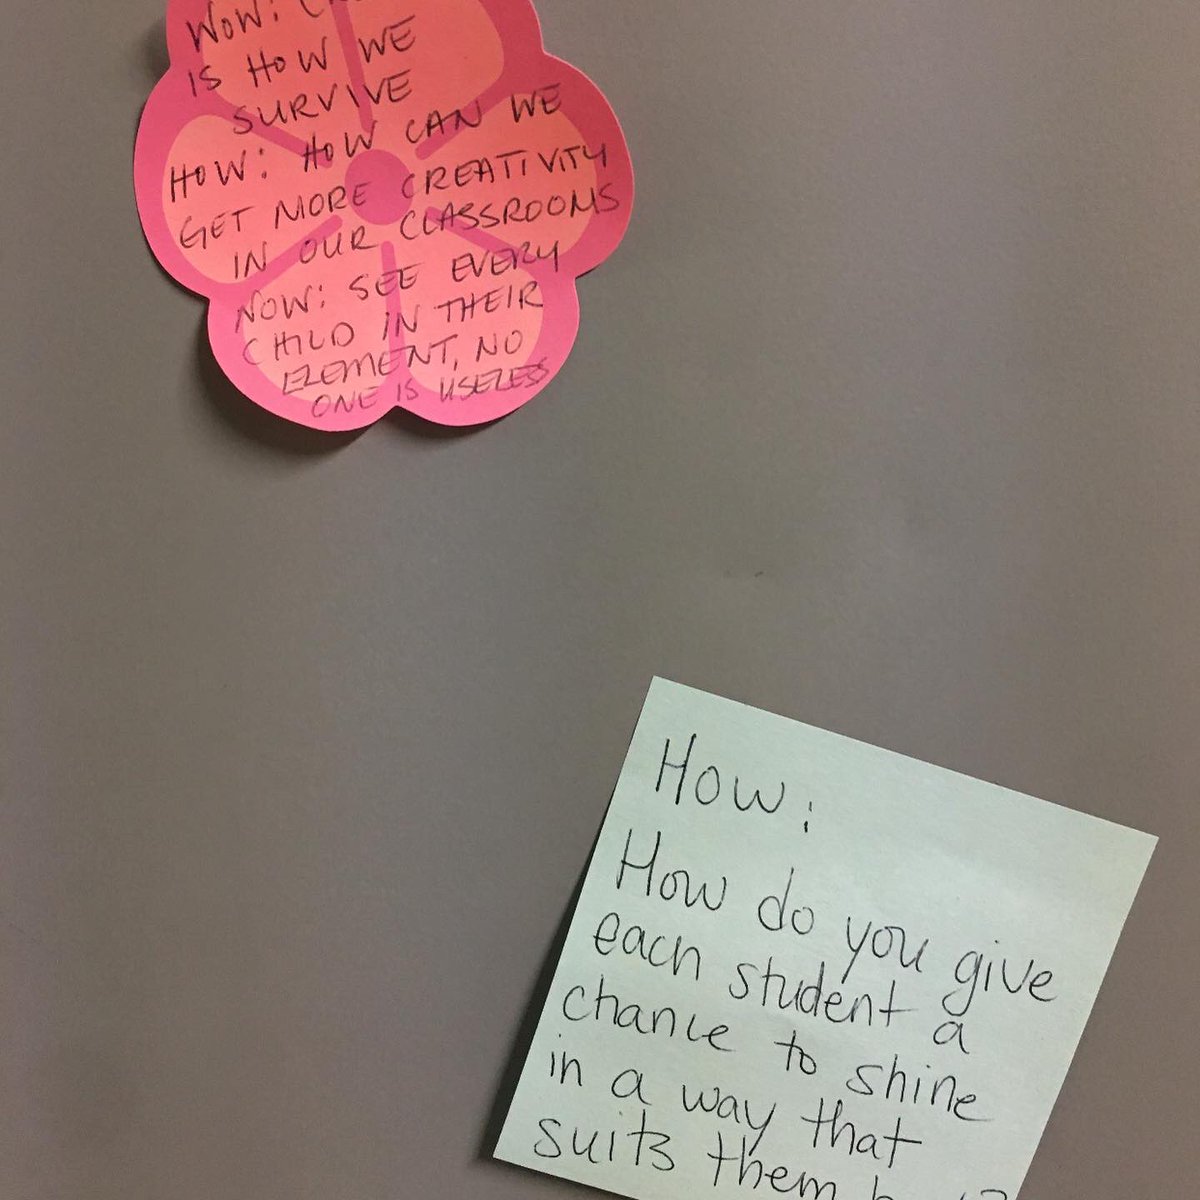 WOW:
IS HOW WE
SURVIVE
HOW: HOW CAN WE
GET MORE CREATIVITY
IN OUR CLASSROOMS
NOW: SEE EVERY
CHILD IN THEIR
ELEMENT, NO
ONE IS USELESS
How:
How do you give
each student a
chance to shine
in a way that
suits them